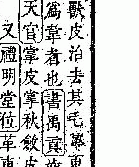 獸皮治去其毛革更
爲韋者也書禹貢
天官掌皮秋斂皮
又禮明堂位革車